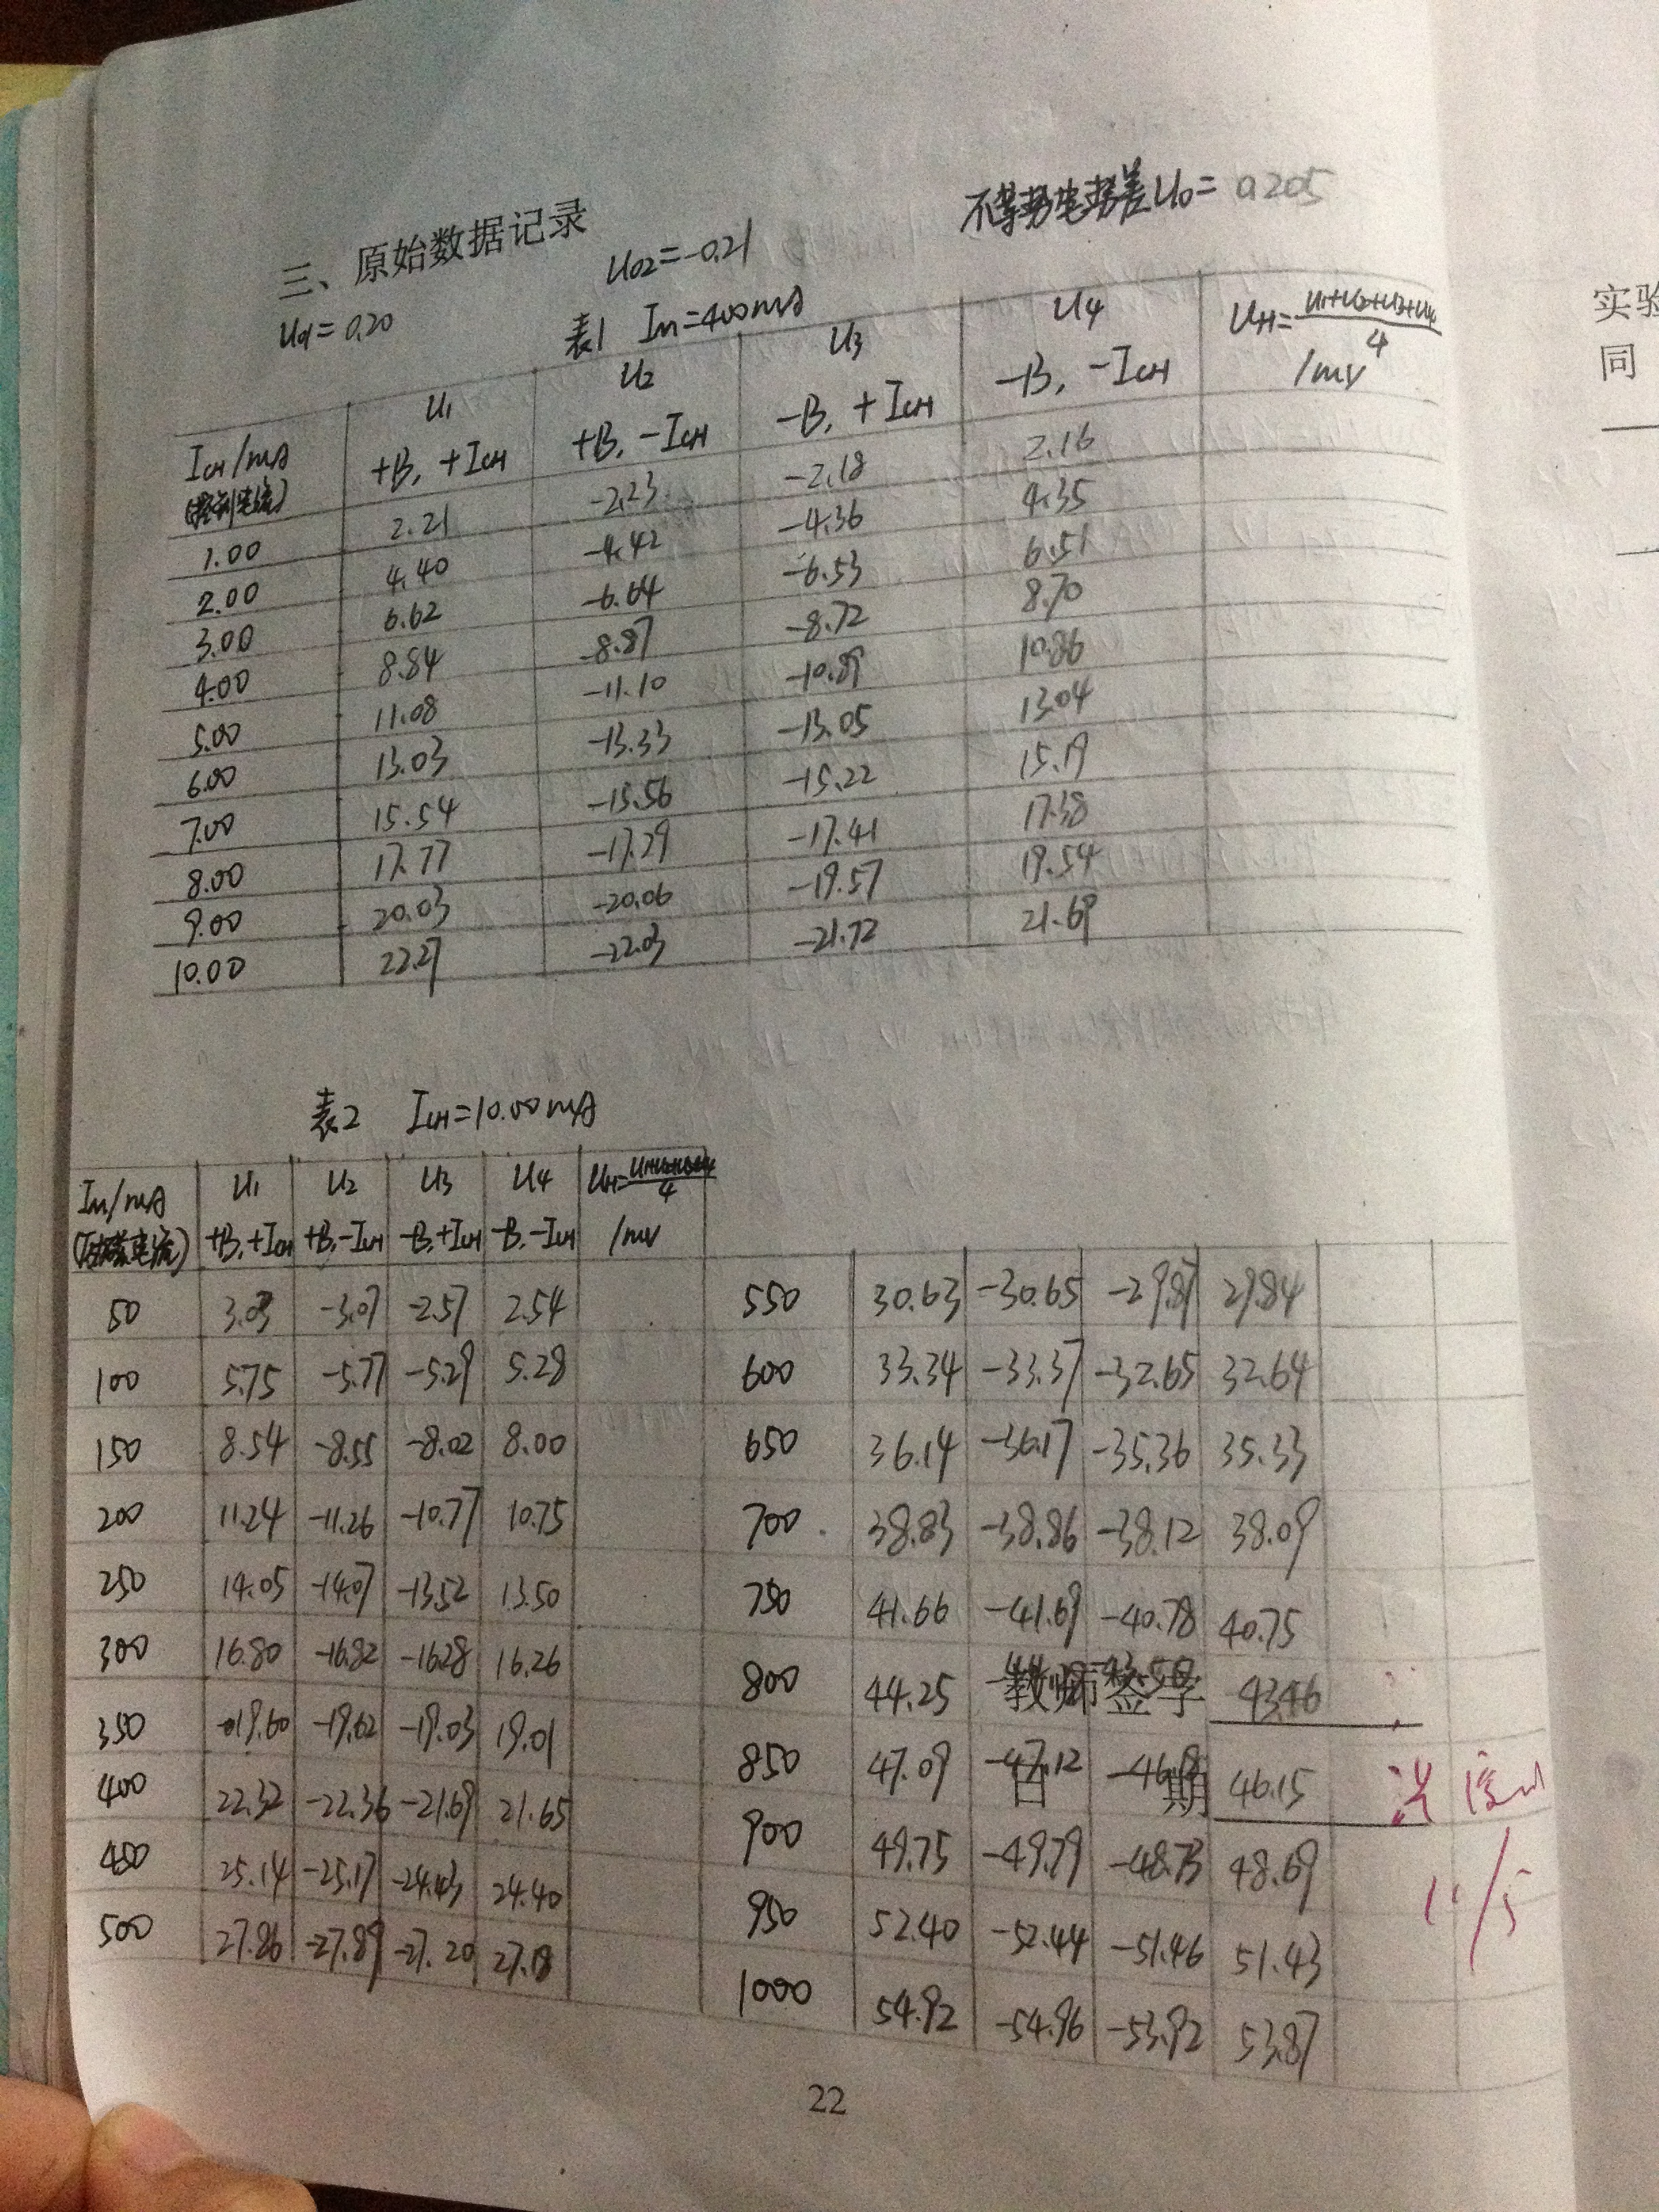 三、原始数据记录
不等势电势差U₀= 0.205
U₀₂=-0.21
U₀₁=0.20
表1 Iₘ=400mA
I_CH/mA (控制电流) U₁ +B, +I_CH U₂ +B, -I_CH U₃ -B, +I_CH U₄ -B, -I_CH U_H=(U₁+U₂+U₃+U₄)/4 /mV
1.00 2.21 -2.23 -2.18 2.16
2.00 4.40 -4.42 -4.36 4.35
3.00 6.62 -6.64 -6.53 6.51
4.00 8.84 -8.87 -8.72 8.70
5.00 11.08 -11.10 -10.89 10.86
6.00 13.03 -13.33 -13.05 13.04
7.00 15.54 -15.56 -15.22 15.19
8.00 17.77 -17.29 -17.41 17.38
9.00 20.03 -20.06 -19.57 19.54
10.00 22.27 -22.03 -21.72 21.69
表2 I_CH=10.00mA
Iₘ/mA (励磁电流) U₁ +B, +I_CH U₂ +B, -I_CH U₃ -B, +I_CH U₄ -B, -I_CH U_H=(U₁+U₂+U₃+U₄)/4 /mV
50 3.03 -3.07 -2.57 2.54
100 5.75 -5.77 -5.29 5.28
150 8.54 -8.55 -8.02 8.00
200 11.24 -11.26 -10.77 10.75
250 14.05 -14.07 -13.52 13.50
300 16.80 -16.82 -16.28 16.26
350 19.60 -19.62 -19.03 19.01
400 22.32 -22.36 -21.69 21.65
450 25.14 -25.17 -24.43 24.40
500 27.86 -27.89 -27.20 27.18
550 30.63 -30.65 -29.87 29.84
600 33.34 -33.37 -32.65 32.64
650 36.14 -36.17 -35.36 35.33
700 38.83 -38.86 -38.12 38.09
750 41.66 -41.69 -40.78 40.75
800 44.25 43.46
教师签字
850 47.09 -47.12 46.15
日 期
900 49.75 -49.79 -48.73 48.69
950 52.40 -52.44 -51.46 51.43
1000 54.92 -54.96 -53.92 53.87
11/5
22
实验
同